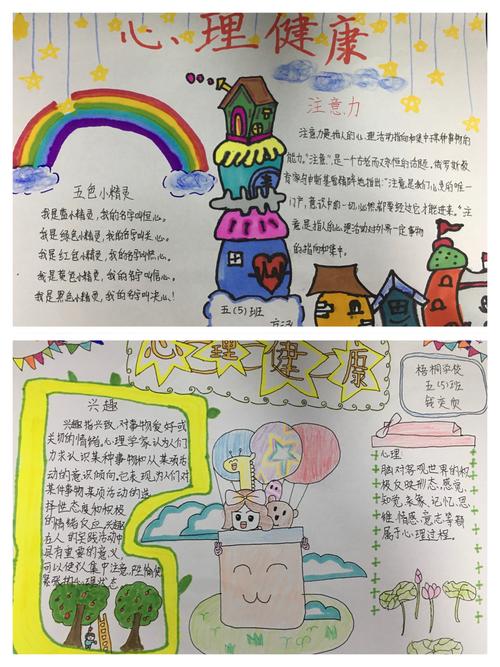 心理健康
五色小精灵
我是蓝小精灵，我的名字叫恒心。
我是绿色小精灵，我的名字叫关心。
我是红色小精灵，我的名字叫热心。
我是黄色小精灵，我的名字叫信心。
我是黑色小精灵，我的名字叫决心！
注意力
注意力是指人的心理活动指向和集中于某种事物的
能力。"注意"，是一个古老而又永恒的话题。俄罗斯教
育家乌申斯基曾精辟地指出："注意是我们心灵的唯一
门户，意识中的一切，必然都要经过它才能进来。"注
意是指人的心理活动对外界一定事物
的指向和集中。
五(5)班
心理健康
梧桐学校
五(5)班
钱奕
兴趣
兴趣指兴致，对事物爱好或
关切的情绪。心理学家认为人们
力求认识某种事物和从某项活
动的意识倾向。它表现为人们对
某件事物某项活动的选
择性态度和积极
的情绪反应。兴趣
在人的实践活动中
具有重要的意义，
可以使人集中注意，产生愉快
紧张的心理状态
心理
脑对客观世界的积
极反映形态，感觉、
知觉、表象、记忆、思
维、情感、意志等都
属于心理过程。